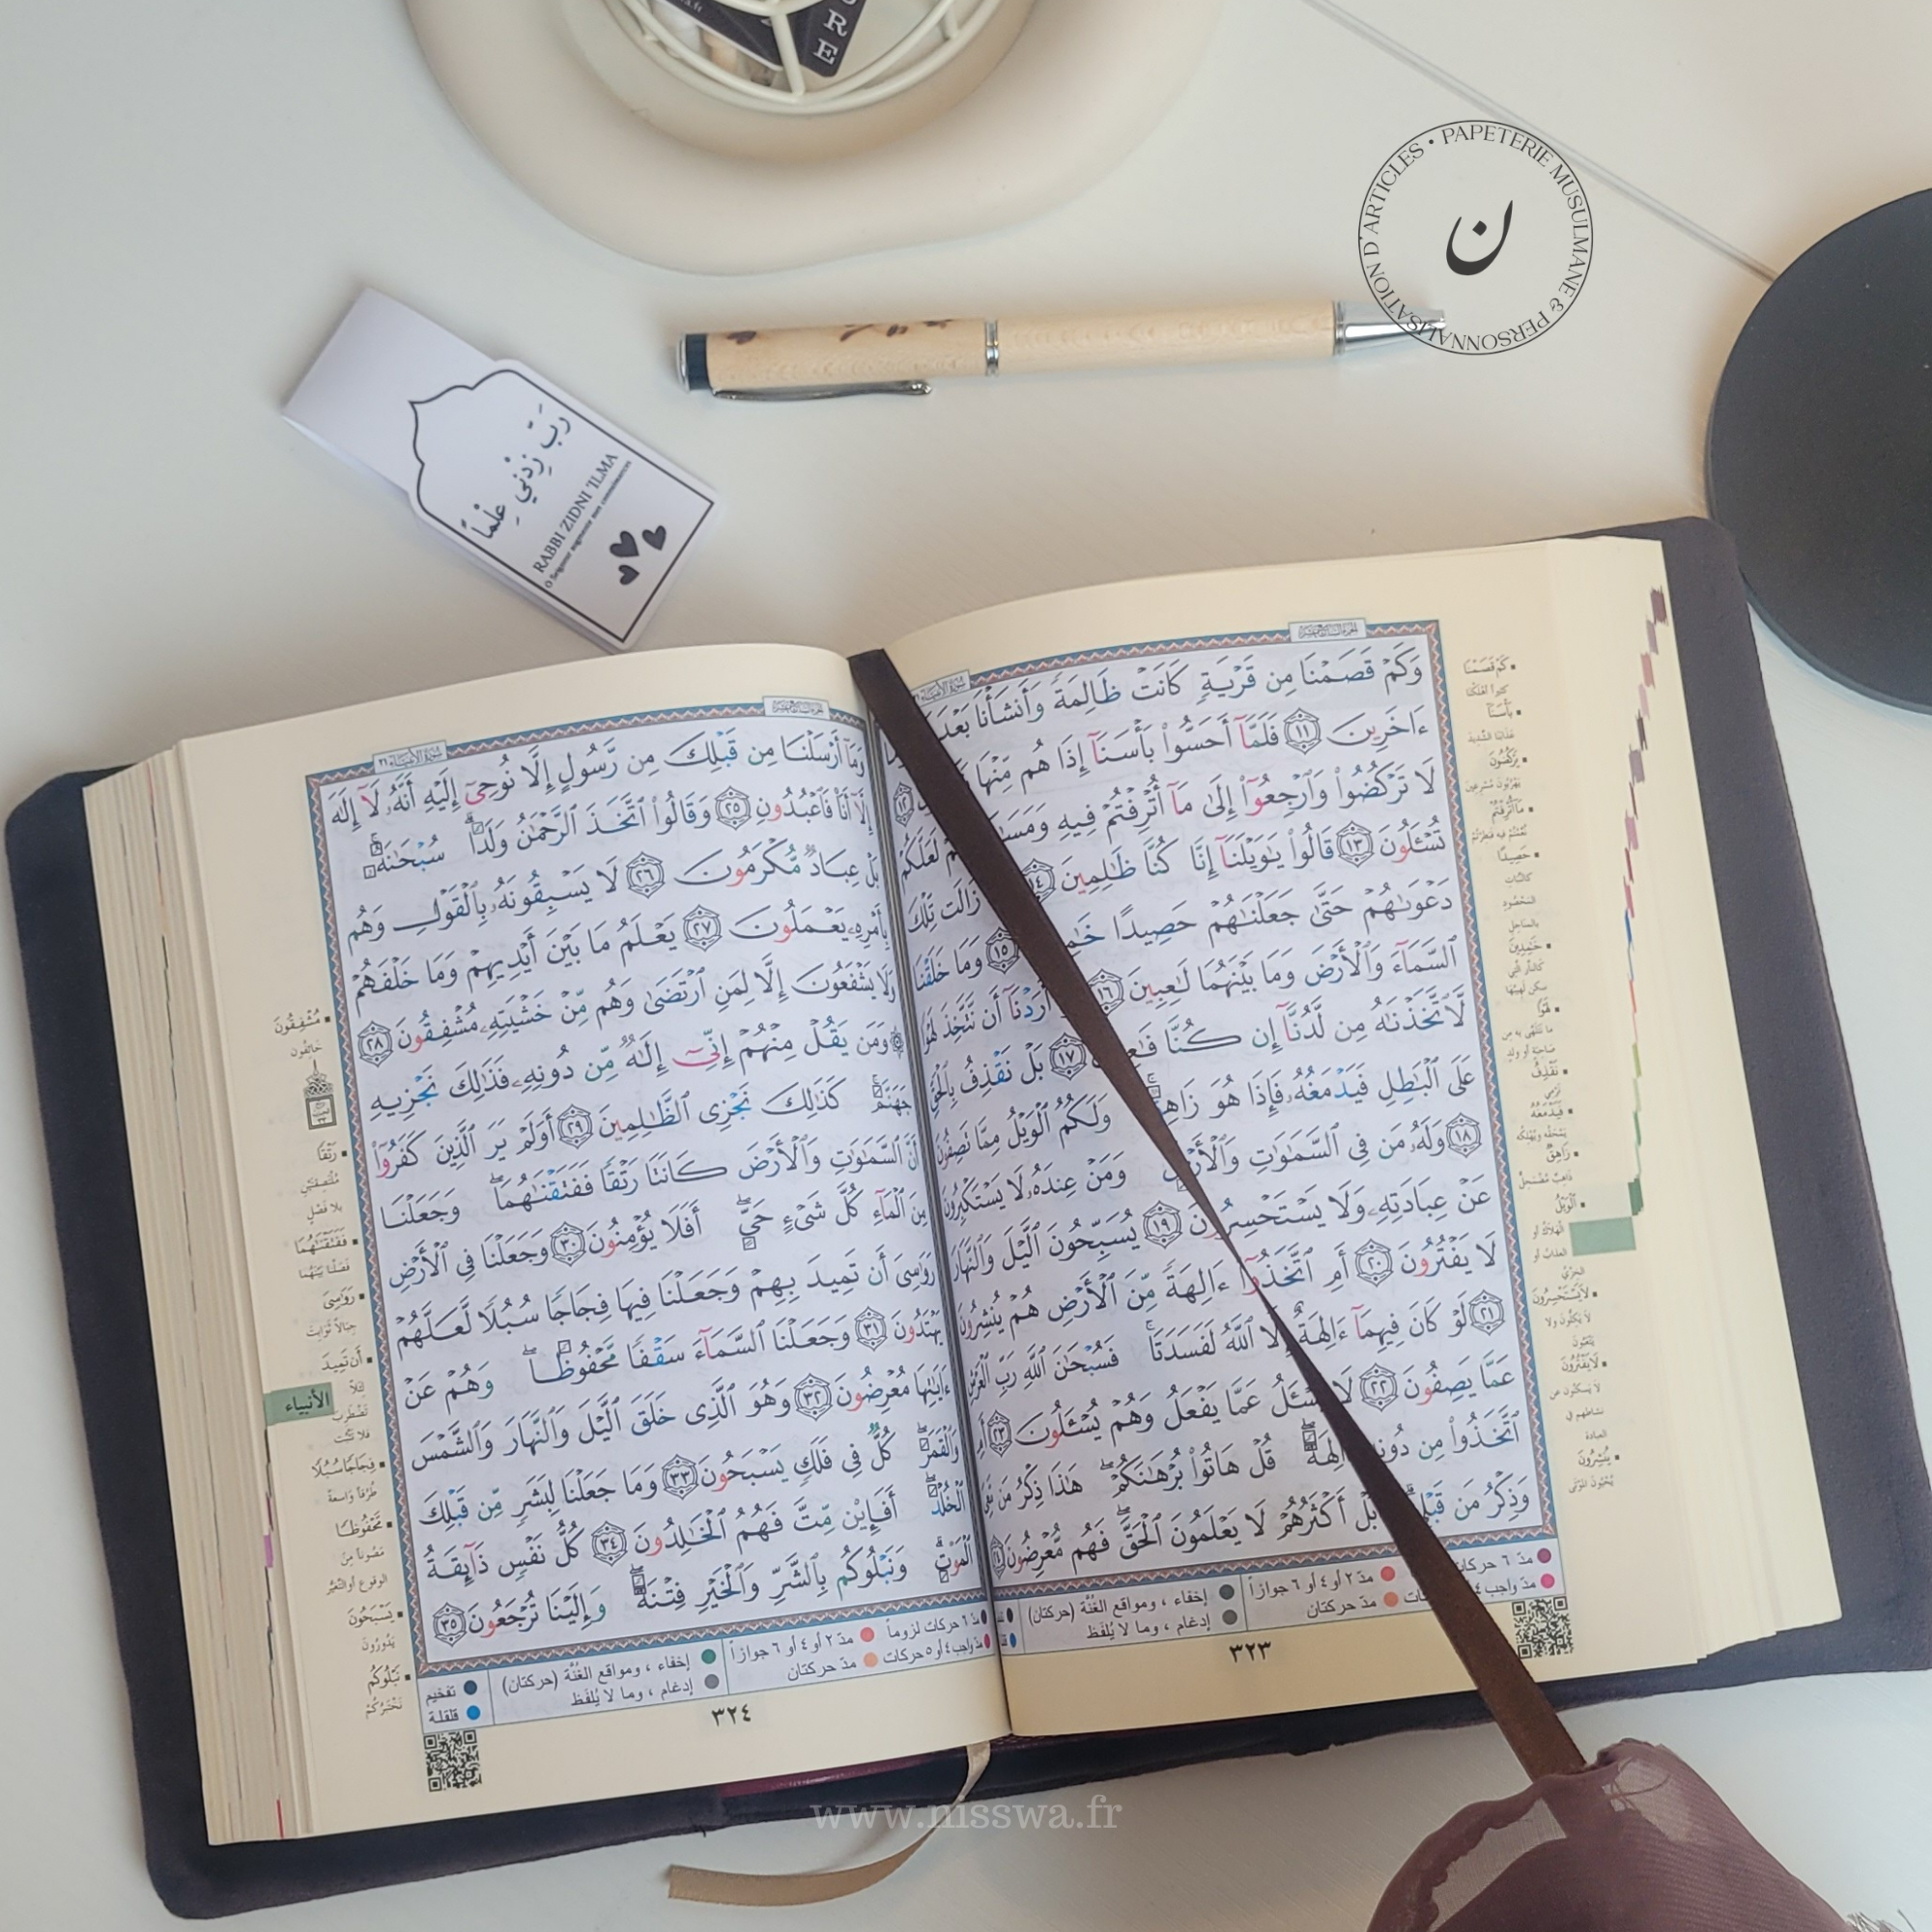 RE
PAPETERIE MUSULMANE & PERSONNALISATION D'ARTICLES •
ن
رَبِّ زِدْنِي عِلْمًا
RABBI ZIDNI 'ILMA
O Seigneur augmente mes connaissances
وَكَمْ قَصَمْنَا مِن قَرْيَةٍ كَانَتْ ظَالِمَةً وَأَنشَأْنَا بَعْدَهَا
ءَاخَرِينَ ١١ فَلَمَّآ أَحَسُّوا۟ بَأْسَنَآ إِذَا هُم مِّنْهَا
لَا تَرْكُضُوا۟ وَٱرْجِعُوٓا۟ إِلَىٰ مَآ أُتْرِفْتُمْ فِيهِ لَعَلَّكُمْ
تُسْـَٔلُونَ ١٣ قَالُوا۟ يَٰوَيْلَنَآ إِنَّا كُنَّا ظَٰلِمِينَ ١٤ زَالَت تِّلْكَ
دَعْوَىٰهُمْ حَتَّىٰ جَعَلْنَٰهُمْ حَصِيدًا ١٥ وَمَا خَلَقْنَا
ٱلسَّمَآءَ وَٱلْأَرْضَ وَمَا بَيْنَهُمَا لَٰعِبِينَ ١٦ أَرَدْنَآ أَن نَّتَّخِذَ لَهْوًا
لَّٱتَّخَذْنَٰهُ مِن لَّدُنَّآ إِن كُنَّا ١٧ بَلْ نَقْذِفُ بِٱلْحَقِّ
عَلَى ٱلْبَٰطِلِ فَيَدْمَغُهُۥ فَإِذَا هُوَ وَلَكُمُ ٱلْوَيْلُ مِمَّا تَصِفُونَ
١٨ وَلَهُۥ مَن فِى ٱلسَّمَٰوَٰتِ وَٱلْأَرْضِ وَمَنْ عِندَهُۥ لَا يَسْتَكْبِرُونَ
عَنْ عِبَادَتِهِۦ وَلَا يَسْتَحْسِرُونَ ١٩ يُسَبِّحُونَ ٱلَّيْلَ وَٱلنَّهَارَ
لَا يَفْتُرُونَ ٢٠ أَمِ ٱتَّخَذُوٓا۟ ءَالِهَةً مِّنَ ٱلْأَرْضِ هُمْ يُنشِرُونَ
٢١ لَوْ كَانَ فِيهِمَآ ءَالِهَةٌ إِلَّا ٱللَّهُ لَفَسَدَتَا ۚ فَسُبْحَٰنَ ٱللَّهِ رَبِّ ٱلْعَرْشِ
عَمَّا يَصِفُونَ ٢٢ لَا يُسْـَٔلُ عَمَّا يَفْعَلُ وَهُمْ يُسْـَٔلُونَ ٢٣ أَمِ
ٱتَّخَذُوا۟ مِن دُونِهِۦٓ ءَالِهَةً ۖ قُلْ هَاتُوا۟ بُرْهَٰنَكُمْ ۖ هَٰذَا ذِكْرُ مَن مَّعِىَ
وَذِكْرُ مَن قَبْلِى ۗ بَلْ أَكْثَرُهُمْ لَا يَعْلَمُونَ ٱلْحَقَّ ۖ فَهُم مُّعْرِضُونَ ٢٤
مدّ ٢ أو ٤ أو ٦ جوازاً
مدّ حركتان
إخفاء ، ومواقع الغنّة (حركتان)
إدغام ، وما لا يُلفَظ
٣٢٣
سُورَةُ الأَنبِيَاءِ ٢١
وَمَآ أَرْسَلْنَا مِن قَبْلِكَ مِن رَّسُولٍ إِلَّا نُوحِىٓ إِلَيْهِ أَنَّهُۥ لَآ إِلَٰهَ
إِلَّآ أَنَا۠ فَٱعْبُدُونِ ٢٥ وَقَالُوا۟ ٱتَّخَذَ ٱلرَّحْمَٰنُ وَلَدًا ۗ سُبْحَٰنَهُۥ ۚ
بَلْ عِبَادٌ مُّكْرَمُونَ ٢٦ لَا يَسْبِقُونَهُۥ بِٱلْقَوْلِ وَهُم
بِأَمْرِهِۦ يَعْمَلُونَ ٢٧ يَعْلَمُ مَا بَيْنَ أَيْدِيهِمْ وَمَا خَلْفَهُمْ
وَلَا يَشْفَعُونَ إِلَّا لِمَنِ ٱرْتَضَىٰ وَهُم مِّنْ خَشْيَتِهِۦ مُشْفِقُونَ ٢٨
۞ وَمَن يَقُلْ مِنْهُمْ إِنِّىٓ إِلَٰهٌ مِّن دُونِهِۦ فَذَٰلِكَ نَجْزِيهِ
جَهَنَّمَ ۚ كَذَٰلِكَ نَجْزِى ٱلظَّٰلِمِينَ ٢٩ أَوَلَمْ يَرَ ٱلَّذِينَ كَفَرُوٓا۟
أَنَّ ٱلسَّمَٰوَٰتِ وَٱلْأَرْضَ كَانَتَا رَتْقًا فَفَتَقْنَٰهُمَا ۖ وَجَعَلْنَا
مِنَ ٱلْمَآءِ كُلَّ شَىْءٍ حَىٍّ ۖ أَفَلَا يُؤْمِنُونَ ٣٠ وَجَعَلْنَا فِى ٱلْأَرْضِ
رَوَٰسِىَ أَن تَمِيدَ بِهِمْ وَجَعَلْنَا فِيهَا فِجَاجًا سُبُلًا لَّعَلَّهُمْ
يَهْتَدُونَ ٣١ وَجَعَلْنَا ٱلسَّمَآءَ سَقْفًا مَّحْفُوظًا ۖ وَهُمْ عَنْ
ءَايَٰتِهَا مُعْرِضُونَ ٣٢ وَهُوَ ٱلَّذِى خَلَقَ ٱلَّيْلَ وَٱلنَّهَارَ وَٱلشَّمْسَ
وَٱلْقَمَرَ ۖ كُلٌّ فِى فَلَكٍ يَسْبَحُونَ ٣٣ وَمَا جَعَلْنَا لِبَشَرٍ مِّن قَبْلِكَ
ٱلْخُلْدَ ۖ أَفَإِي۟ن مِّتَّ فَهُمُ ٱلْخَٰلِدُونَ ٣٤ كُلُّ نَفْسٍ ذَآئِقَةُ
ٱلْمَوْتِ ۗ وَنَبْلُوكُم بِٱلشَّرِّ وَٱلْخَيْرِ فِتْنَةً ۖ وَإِلَيْنَا تُرْجَعُونَ ٣٥
مدّ ٦ حركات لزوماً
مدّ واجب ٤ أو ٥ حركات
مدّ ٢ أو ٤ أو ٦ جوازاً
مدّ حركتان
إخفاء ، ومواقع الغنّة (حركتان)
إدغام ، وما لا يُلفَظ
تفخيم
قلقلة
٣٢٤
مُشْفِقُونَ
خائفون
رَتْقًا
فَفَتَقْنَٰهُمَا
رَوَٰسِىَ
أَن تَمِيدَ
الأنبياء
فِجَاجًا سُبُلًا
طُرُقاً واسعةً
مَّحْفُوظًا
يَسْبَحُونَ
يَدُورُونَ
نَبْلُوكُم
نَخْتَبِرُكُمْ
www.nisswa.fr